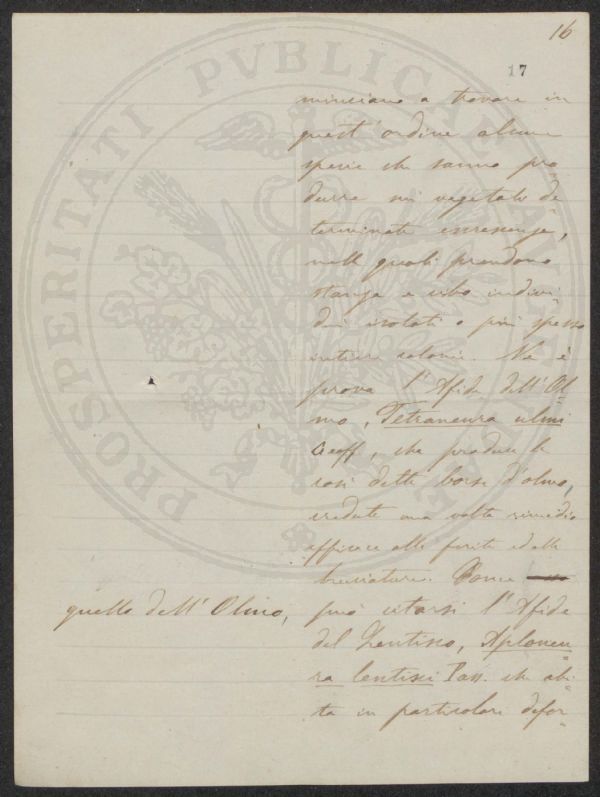 16
17
minciano a trovare in
quest'ordine alcune
specie che sanno pro
durre sui vegetali de
terminate escrescenze,
nelle quali prendono
stanza e cibo indivi
dui isolati o più spesso
intiere colonie. Ne è
prova l'Afide dell'Ol
mo, Tetraneura ulmi
Geoff, che produce le
così dette borse d'olmo,
credute una volta rimedio
efficace alle ferite ed alle
bruciature. Come
quello dell'Olmo,
può citarsi l'Afide
del Lentisco, Aploneu
ra lentisci Pass. che abi
ta in particolari defor
PROSPERITATI PVBLICAE AVGENDAE